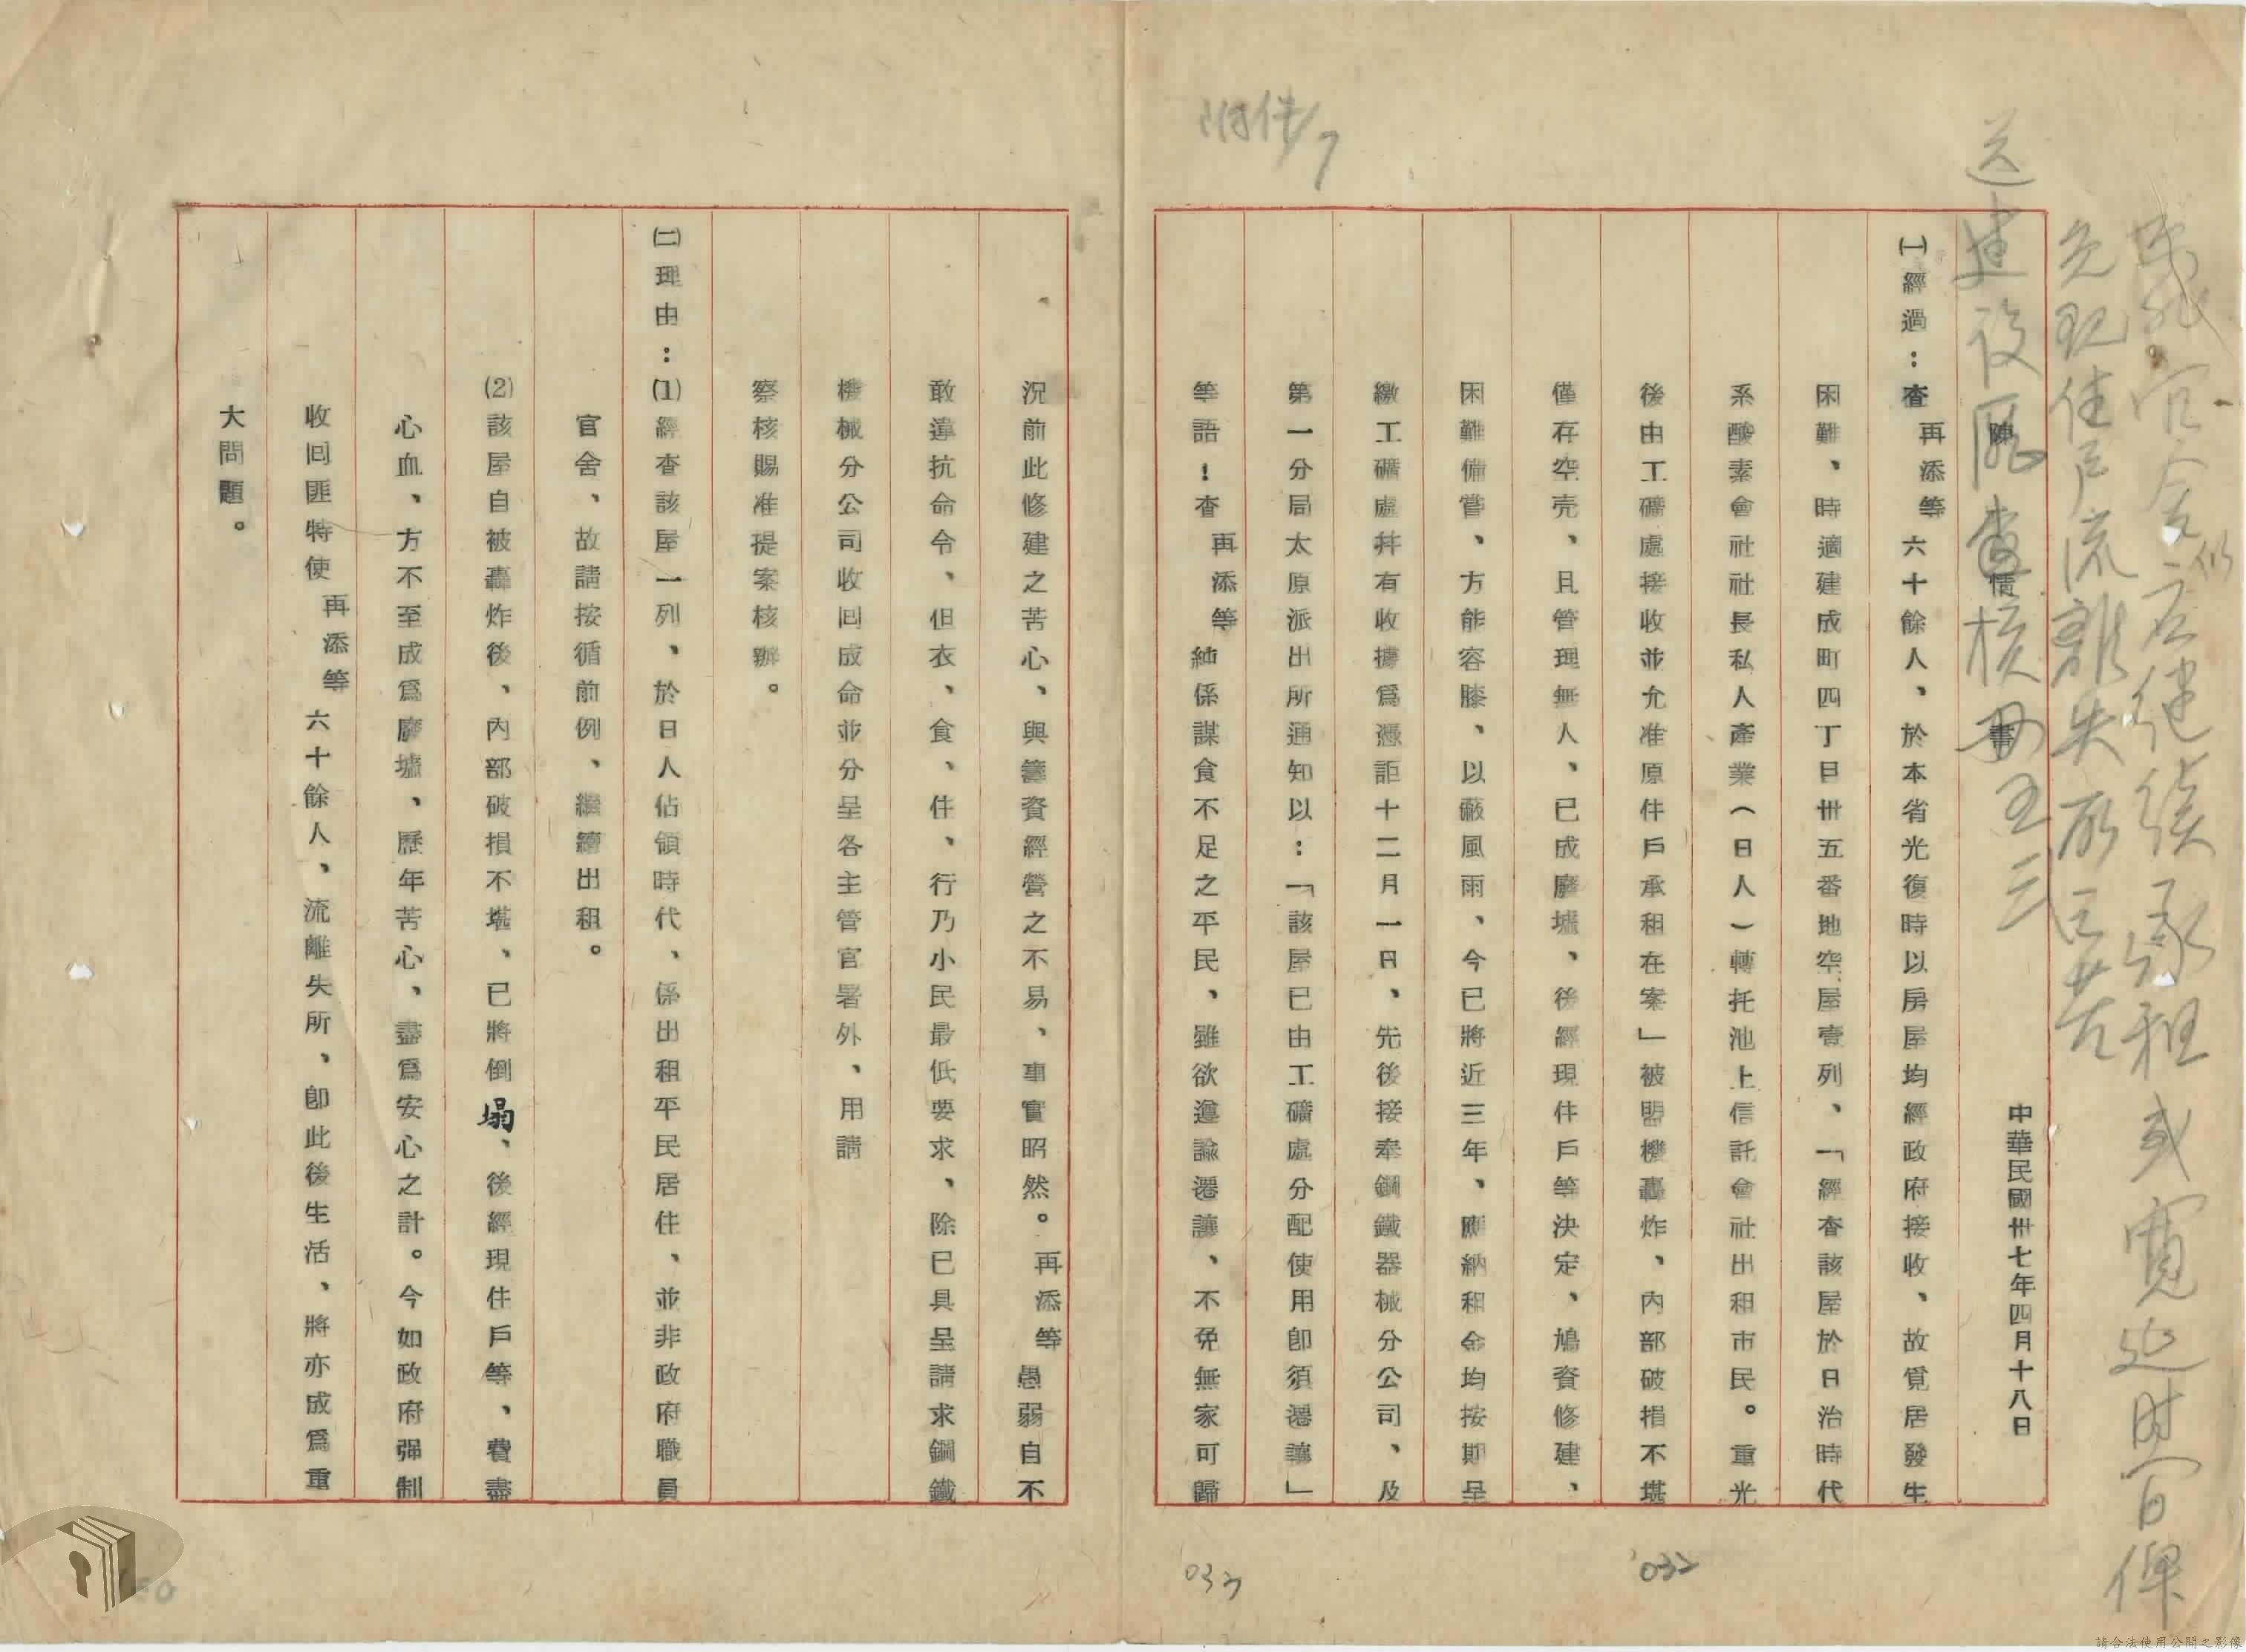 附件7
民政官舍似應繼續承租或寬延時間俾
免現住戶流離失所之苦
送建設廳查核 五 三
陳情書
中華民國卅七年四月十八日
㈠經過：查再添等六十餘人、於本省光復時以房屋均經政府接收、故覓居發生
困難、時適建成町四丁目卅五番地空屋壹列、「經查該屋於日治時代
系酸素會社社長私人產業（日人）轉托池上信託會社出租市民。重光
後由工礦處接收並允准原住戶承租在案」被盟機轟炸、內部破損不堪
僅存空壳、且管理無人、已成廢墟、後經現住戶等決定、鳩資修建、
困難備嘗、方能容膝、以蔽風雨、今已將近三年、應納租金均按期呈
繳工礦處幷有收據爲憑詎十二月一日、先後接奉鋼鐵器械分公司、及
第一分局太原派出所通知以：「該屋已由工礦處分配使用卽須遷讓」
等語！查再添等純係謀食不足之平民、雖欲遵諭遷讓、不免無家可歸
況前此修建之苦心、與籌資經營之不易、事實昭然。再添等愚弱自不
敢違抗命令、但衣、食、住、行乃小民最低要求、除已具呈請求鋼鐵
機械分公司收回成命並分呈各主管官署外、用請
察核賜准提案核辦。
㈡理由：⑴經查該屋一列、於日人佔領時代、係出租平民居住、並非政府職員
官舍、故請按循前例、繼續出租。
⑵該屋自被轟炸後、內部破損不堪、已將倒塌、後經現住戶等、費盡
心血、方不至成爲廢墟、歷年苦心、盡爲安心之計。今如政府强制
收回匪特使再添等六十餘人、流離失所、卽此後生活、將亦成爲重
大問題。
032
033
請合法使用公開之影像